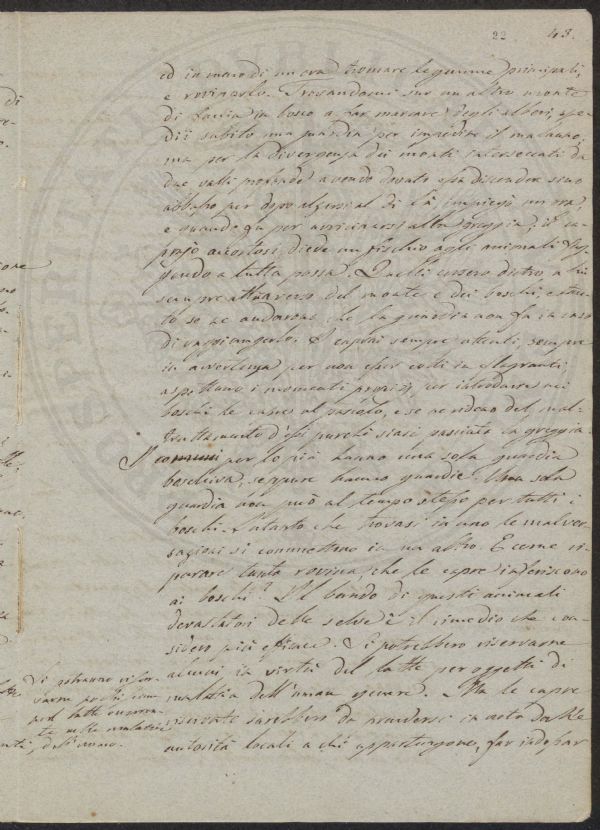 22 43.
ed in meno di un'ora troncare le gemme principali,
e rovinarlo. Trovandomi sur un altro monte
di faccia in bosco a far marcare degli alberi, spe-
dii subito una guardia per impedire il malanno;
ma per la divergenza dei monti intersecati da
due valli profonde avendo dovuto essa discendere sino
abbasso per dopo al di là impiegò un'ora,
e quando fu per avvicinarsi alla greggia, il ca-
prajo accortosi diede un fischio agli animali fug-
gendo a tutta possa. Quelli corsero dietro a lui
sempre attraverso del monte e dei boschi, e tan-
to se ne andarono che la guardia non fu in caso
di raggiungerlo. I caprai sempre attenti, sempre
in avvertenza per non esser colti in flagranti,
aspettano i momenti propizj per introdurre nei
boschi le capre al pascolo, e se ne ridono del mal-
trattamento d'essi purché siasi pasciuta la greggia.
I comuni per lo più hanno una sola guardia
boschiva, seppure hanno guardie. Una sola
guardia non può al tempo stesso per tutti i
boschi. Intanto che trovasi in uno le malver-
sazioni si commettono in un altro. E come ri-
parare tanta rovina, che le capre inferiscono
ai boschi? Il bando di questi animali
devastatori delle selve è il rimedio che con-
sidero più efficace. Si potrebbero riservarne
alcuni in virtù del latte per oggetti di
malattia dell'uman genere. Ma le capre
riservate sarebbero da prendersi in nota dalle
autorità locali a chi appartengono, far
Si potranno riser-
varne pochi
pel latte
te nelle malattie
dell'uomo.